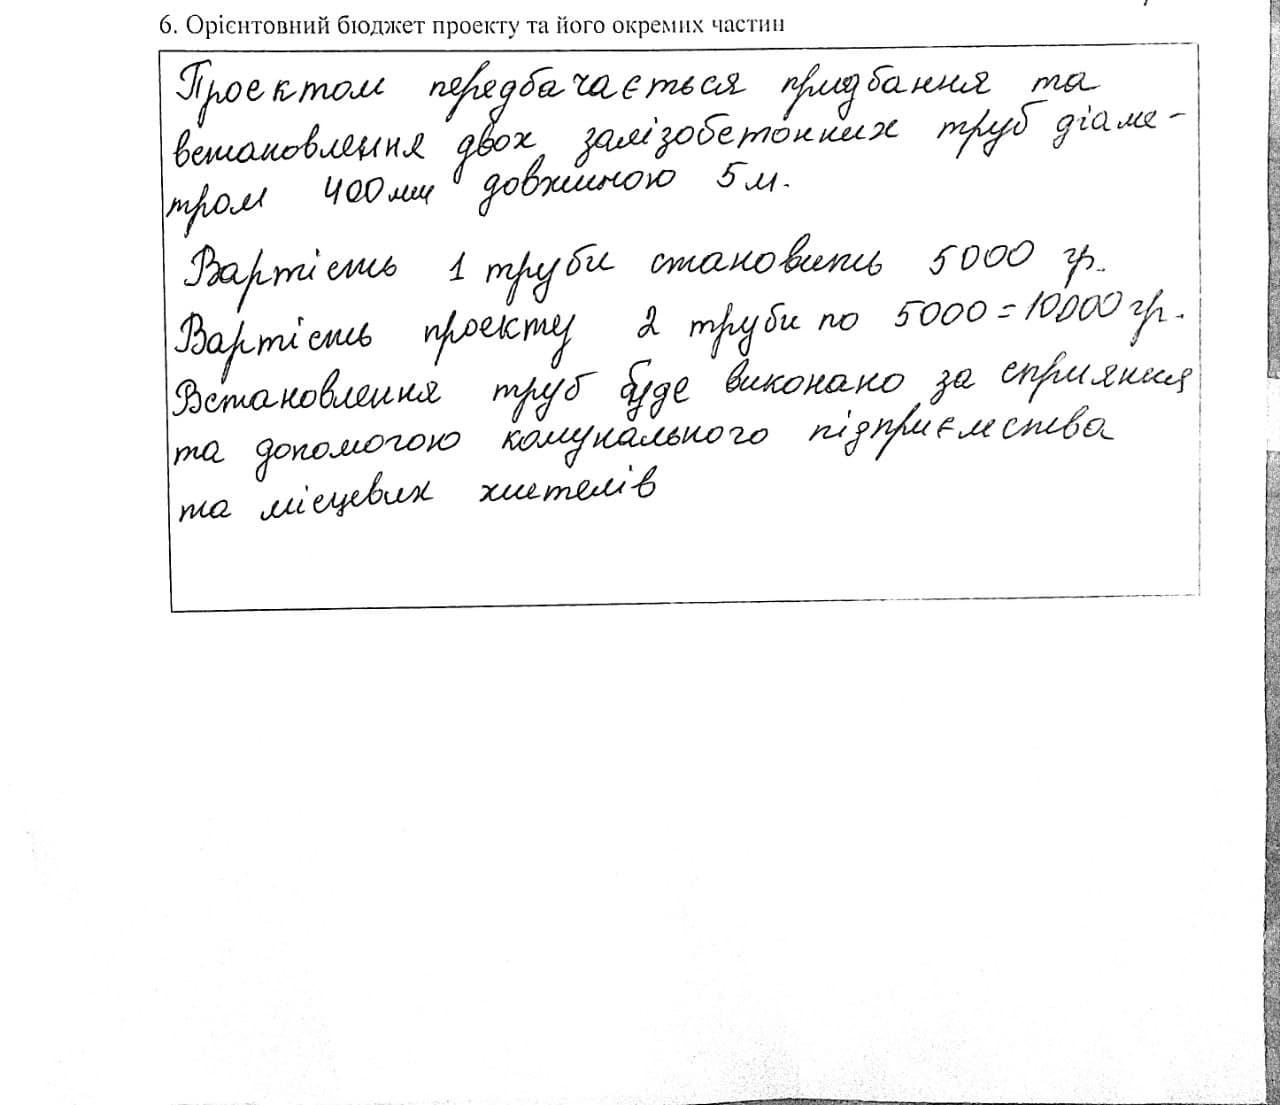 6. Орієнтовний бюджет проекту та його окремих частин
Проєктом передбачається придбання та
встановлення двох залізобетонних труб діаме-
тром 400мм довжиною 5м.
Вартість 1 труби становить 5000 гр.
Вартість проєкту 2 труби по 5000=10000гр.
Встановлення труб буде виконано за сприяння
та допомогою комунального підприємства
та місцевих жителів